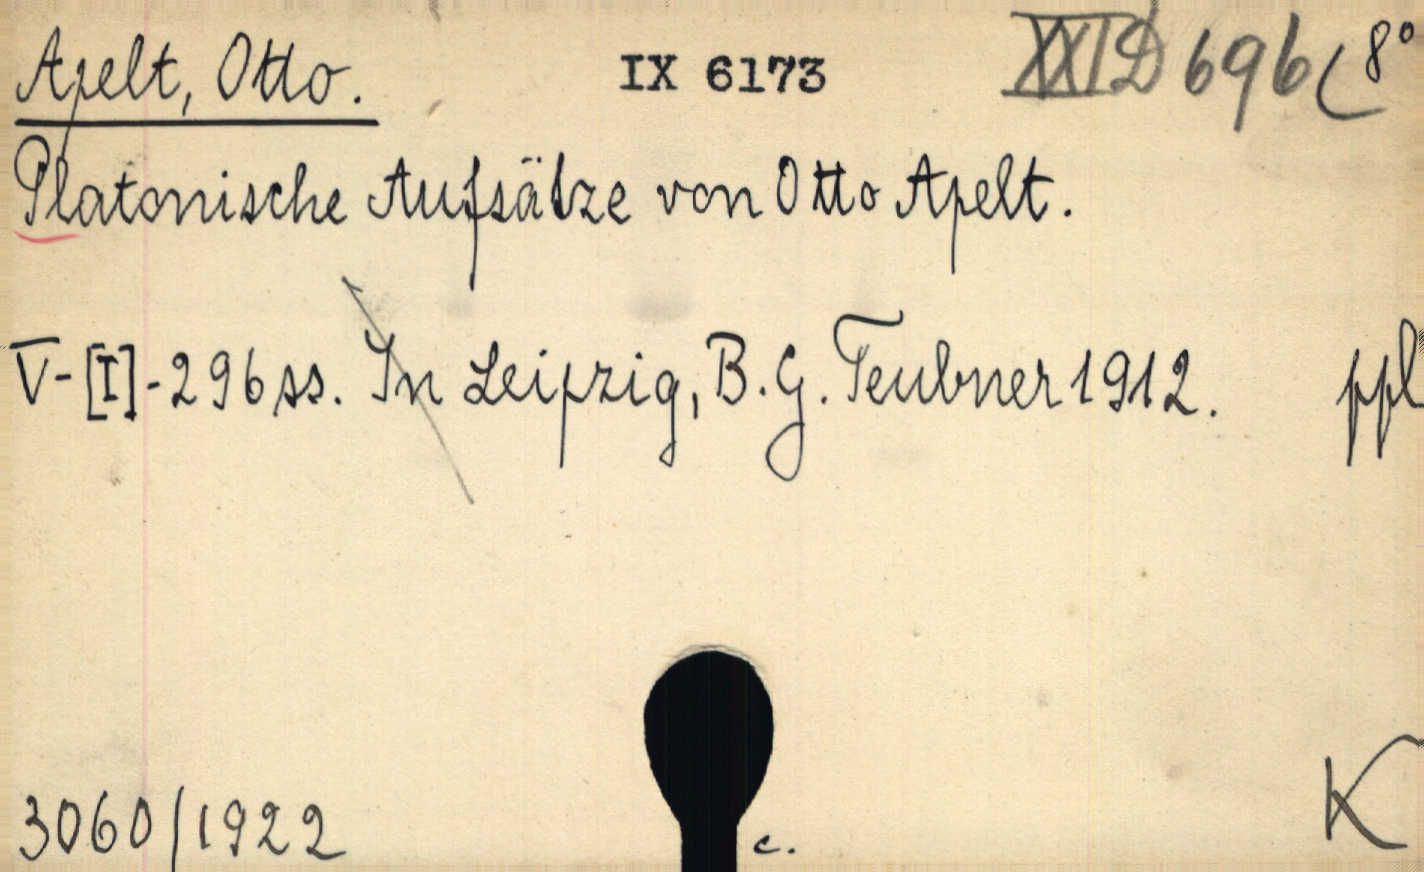 Apelt, Otto. IX 6173 XXI D 696 8°
Platonische Aufsätze von Otto Apelt.
V-[I]-296 ss. In Leipzig, B. G. Teubner 1912. ppl
3060/1922 c. K